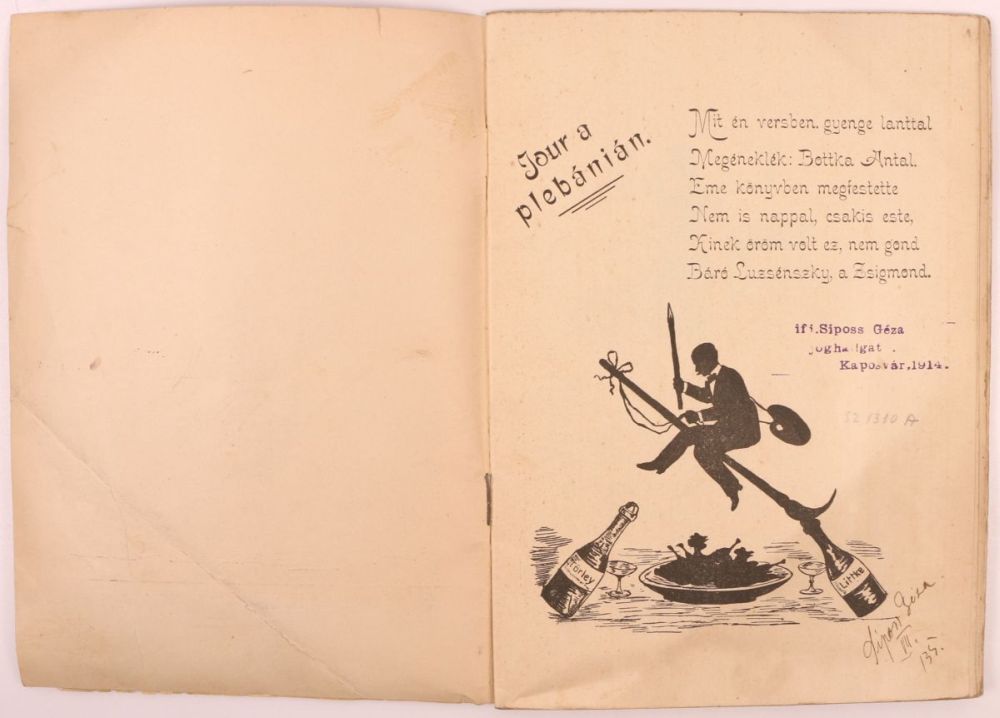 Jour a
plebánián.
Mit én versben. gyenge lanttal
Megéneklék: Bottka Antal.
Eme könyvben megfestette
Nem is nappal, csakis este,
Kinek öröm volt ez, nem gond
Báró Luzsénszky, a Zsigmond.
ifj.Siposs Géza
joghallgat
Kaposvár,1914.
52 1310 A
Törley
Littke
Siposs Géza
VII.
135.